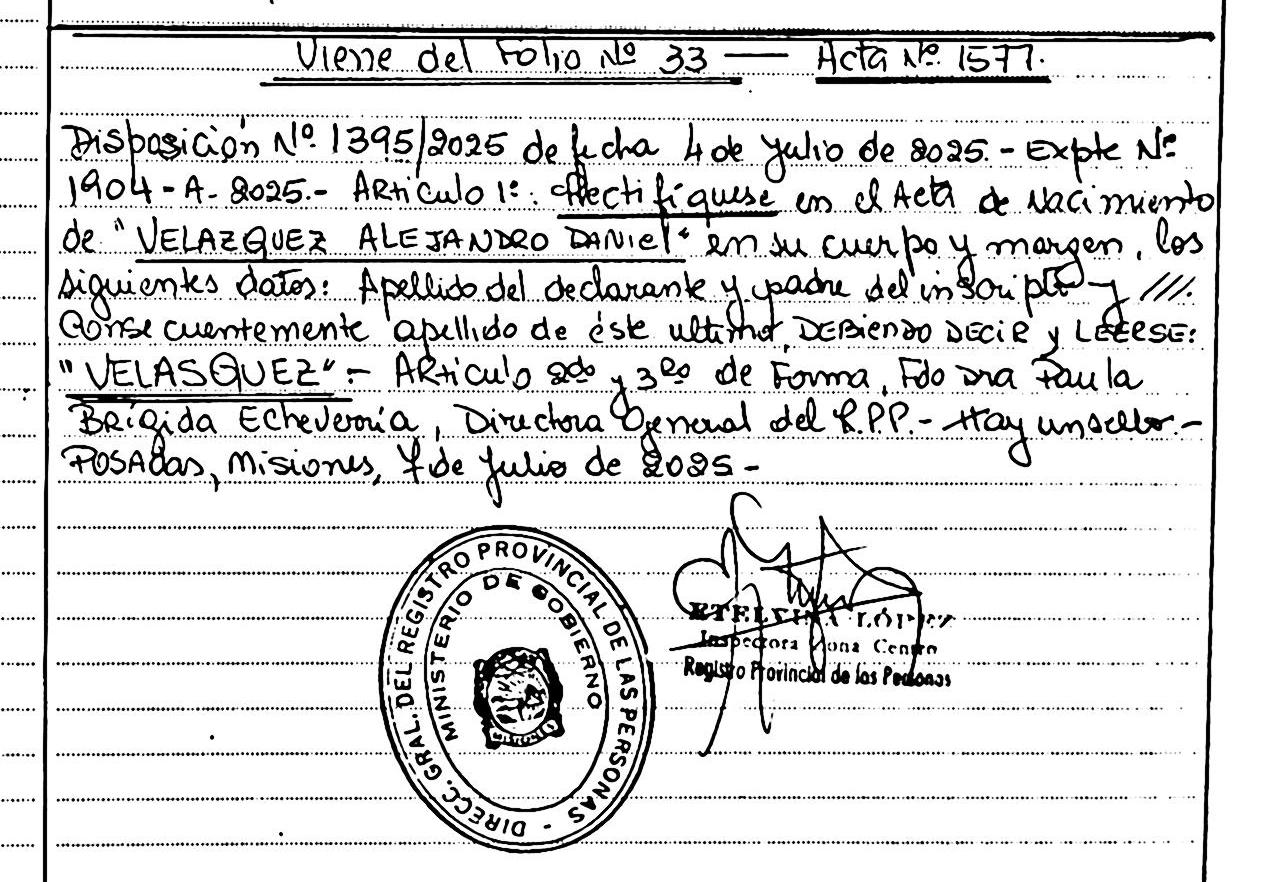 Viene del Folio Nº 33 — Acta Nº 1577.
Disposición Nº 1395/2025 de fecha 4 de Julio de 2025.- Expte Nº
1904-A-2025.- ARticulo 1º: Rectifíquese en el Acta de Nacimiento
de "VELAZQUEZ ALEJANDRO DANIEL" en su cuerpo y margen, los
siguientes datos: Apellido del declarante y padre del inscripto y ///.
Consecuentemente apellido de éste ultimo, DEBIENDO DECIR y LEERSE:
"VELASQUEZ".- ARticulo 2do y 3ro de Forma, Fdo Dra Paula
Brígida Echeverría, Directora General del R.P.P.- Hay un sello.-
POSAdas, Misiones, 4 de Julio de 2025-
DIRECC. GRAL. DEL REGISTRO PROVINCIAL DE LAS PERSONAS -
MINISTERIO DE GOBIERNO
ETELVINA LÓPEZ
Inspectora Zona Centro
Registro Provincial de las Personas